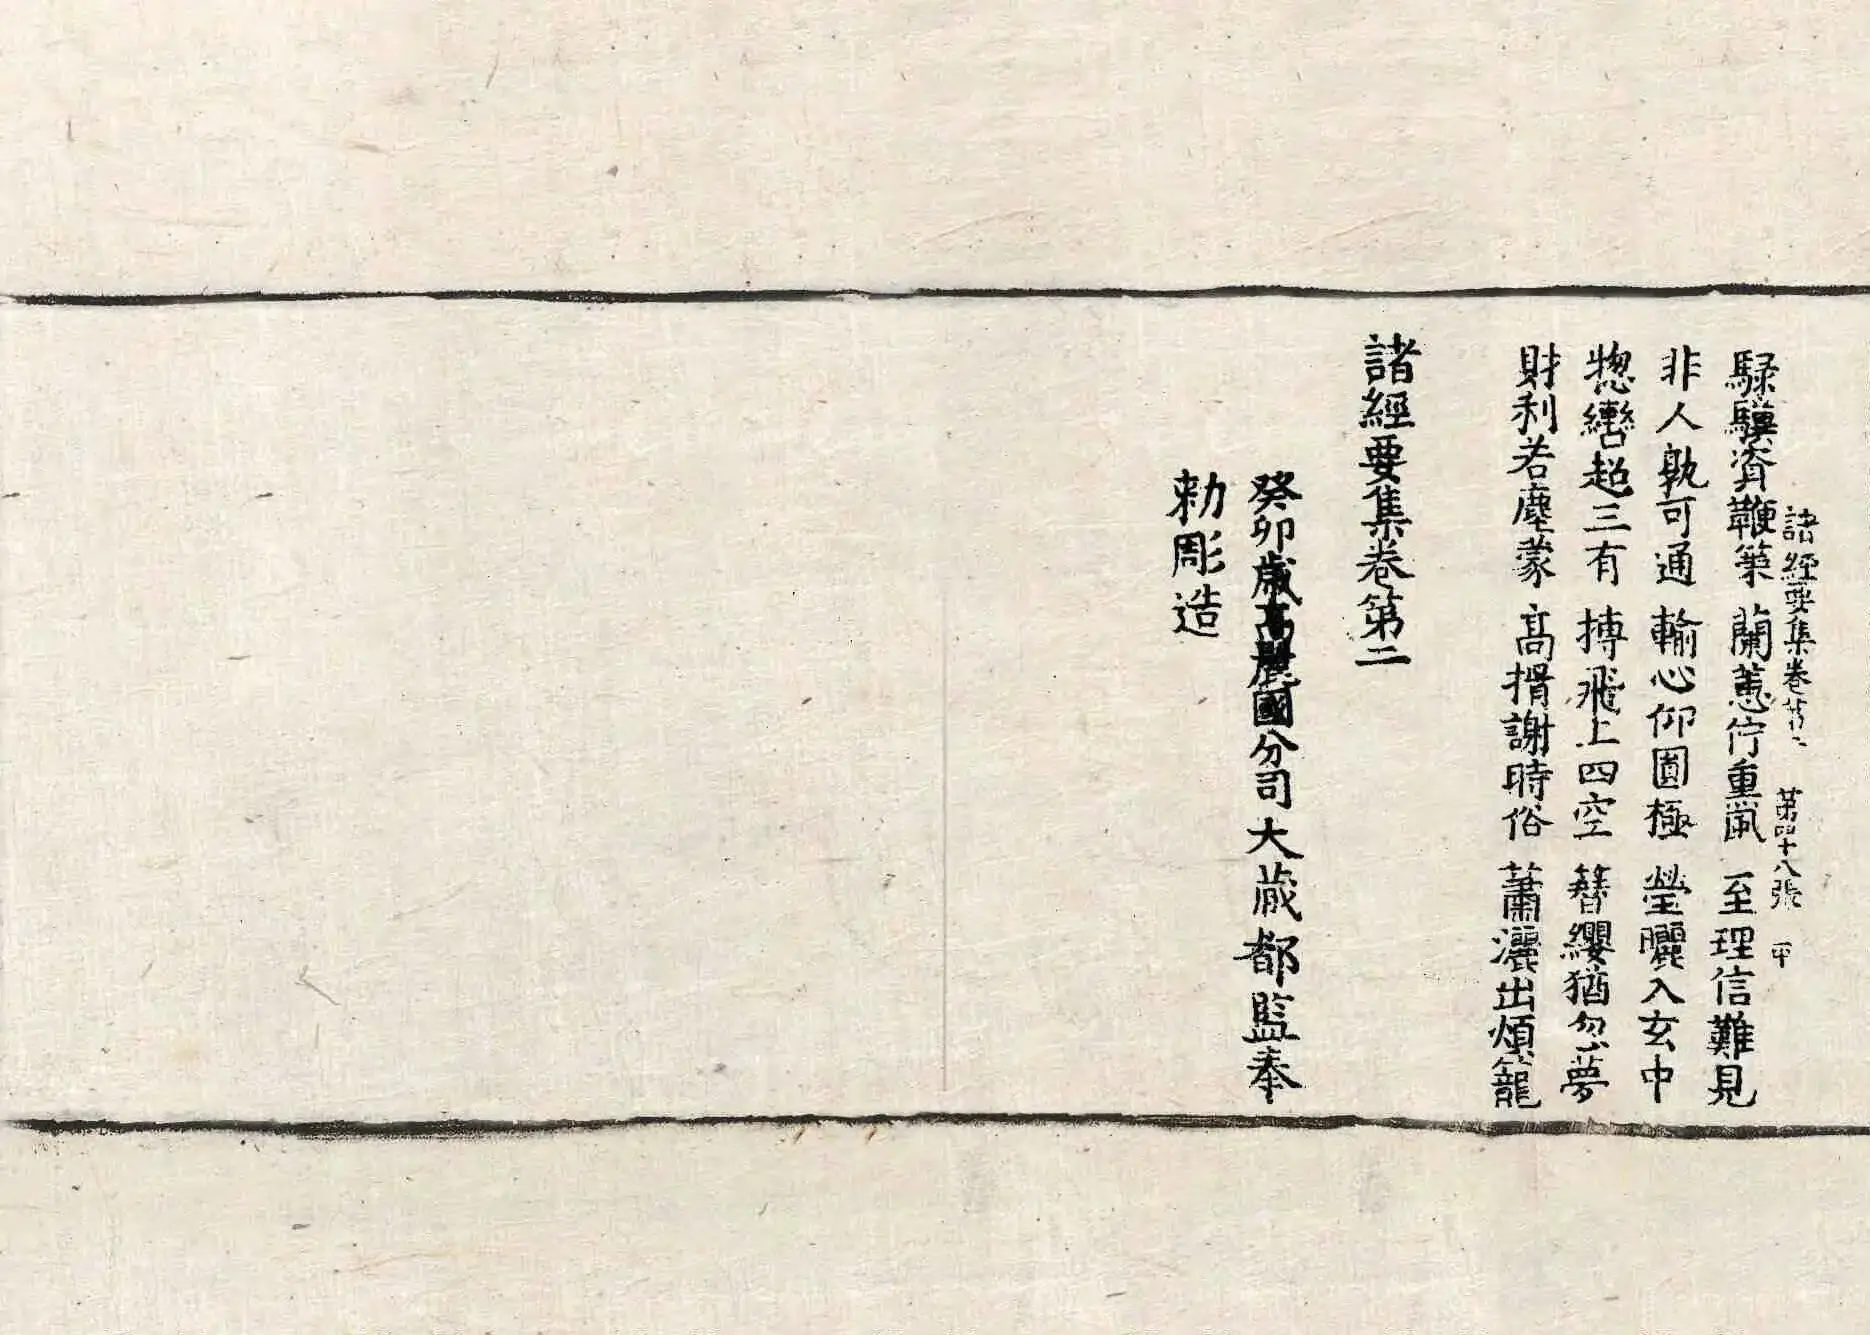 諸經要集卷第二　第四十八張　甲
騄驥資鞭策　蘭蕙佇重風　至理信難見
非人孰可通　輸心仰圎極　瑩曬入玄中
揔轡超三有　摶飛上四空　簪纓猶忽夢
財利若塵蒙　髙揖謝時俗　蕭灑出煩籠
諸經要集卷第二
癸卯歲高麗國分司大藏都監奉
勅彫造